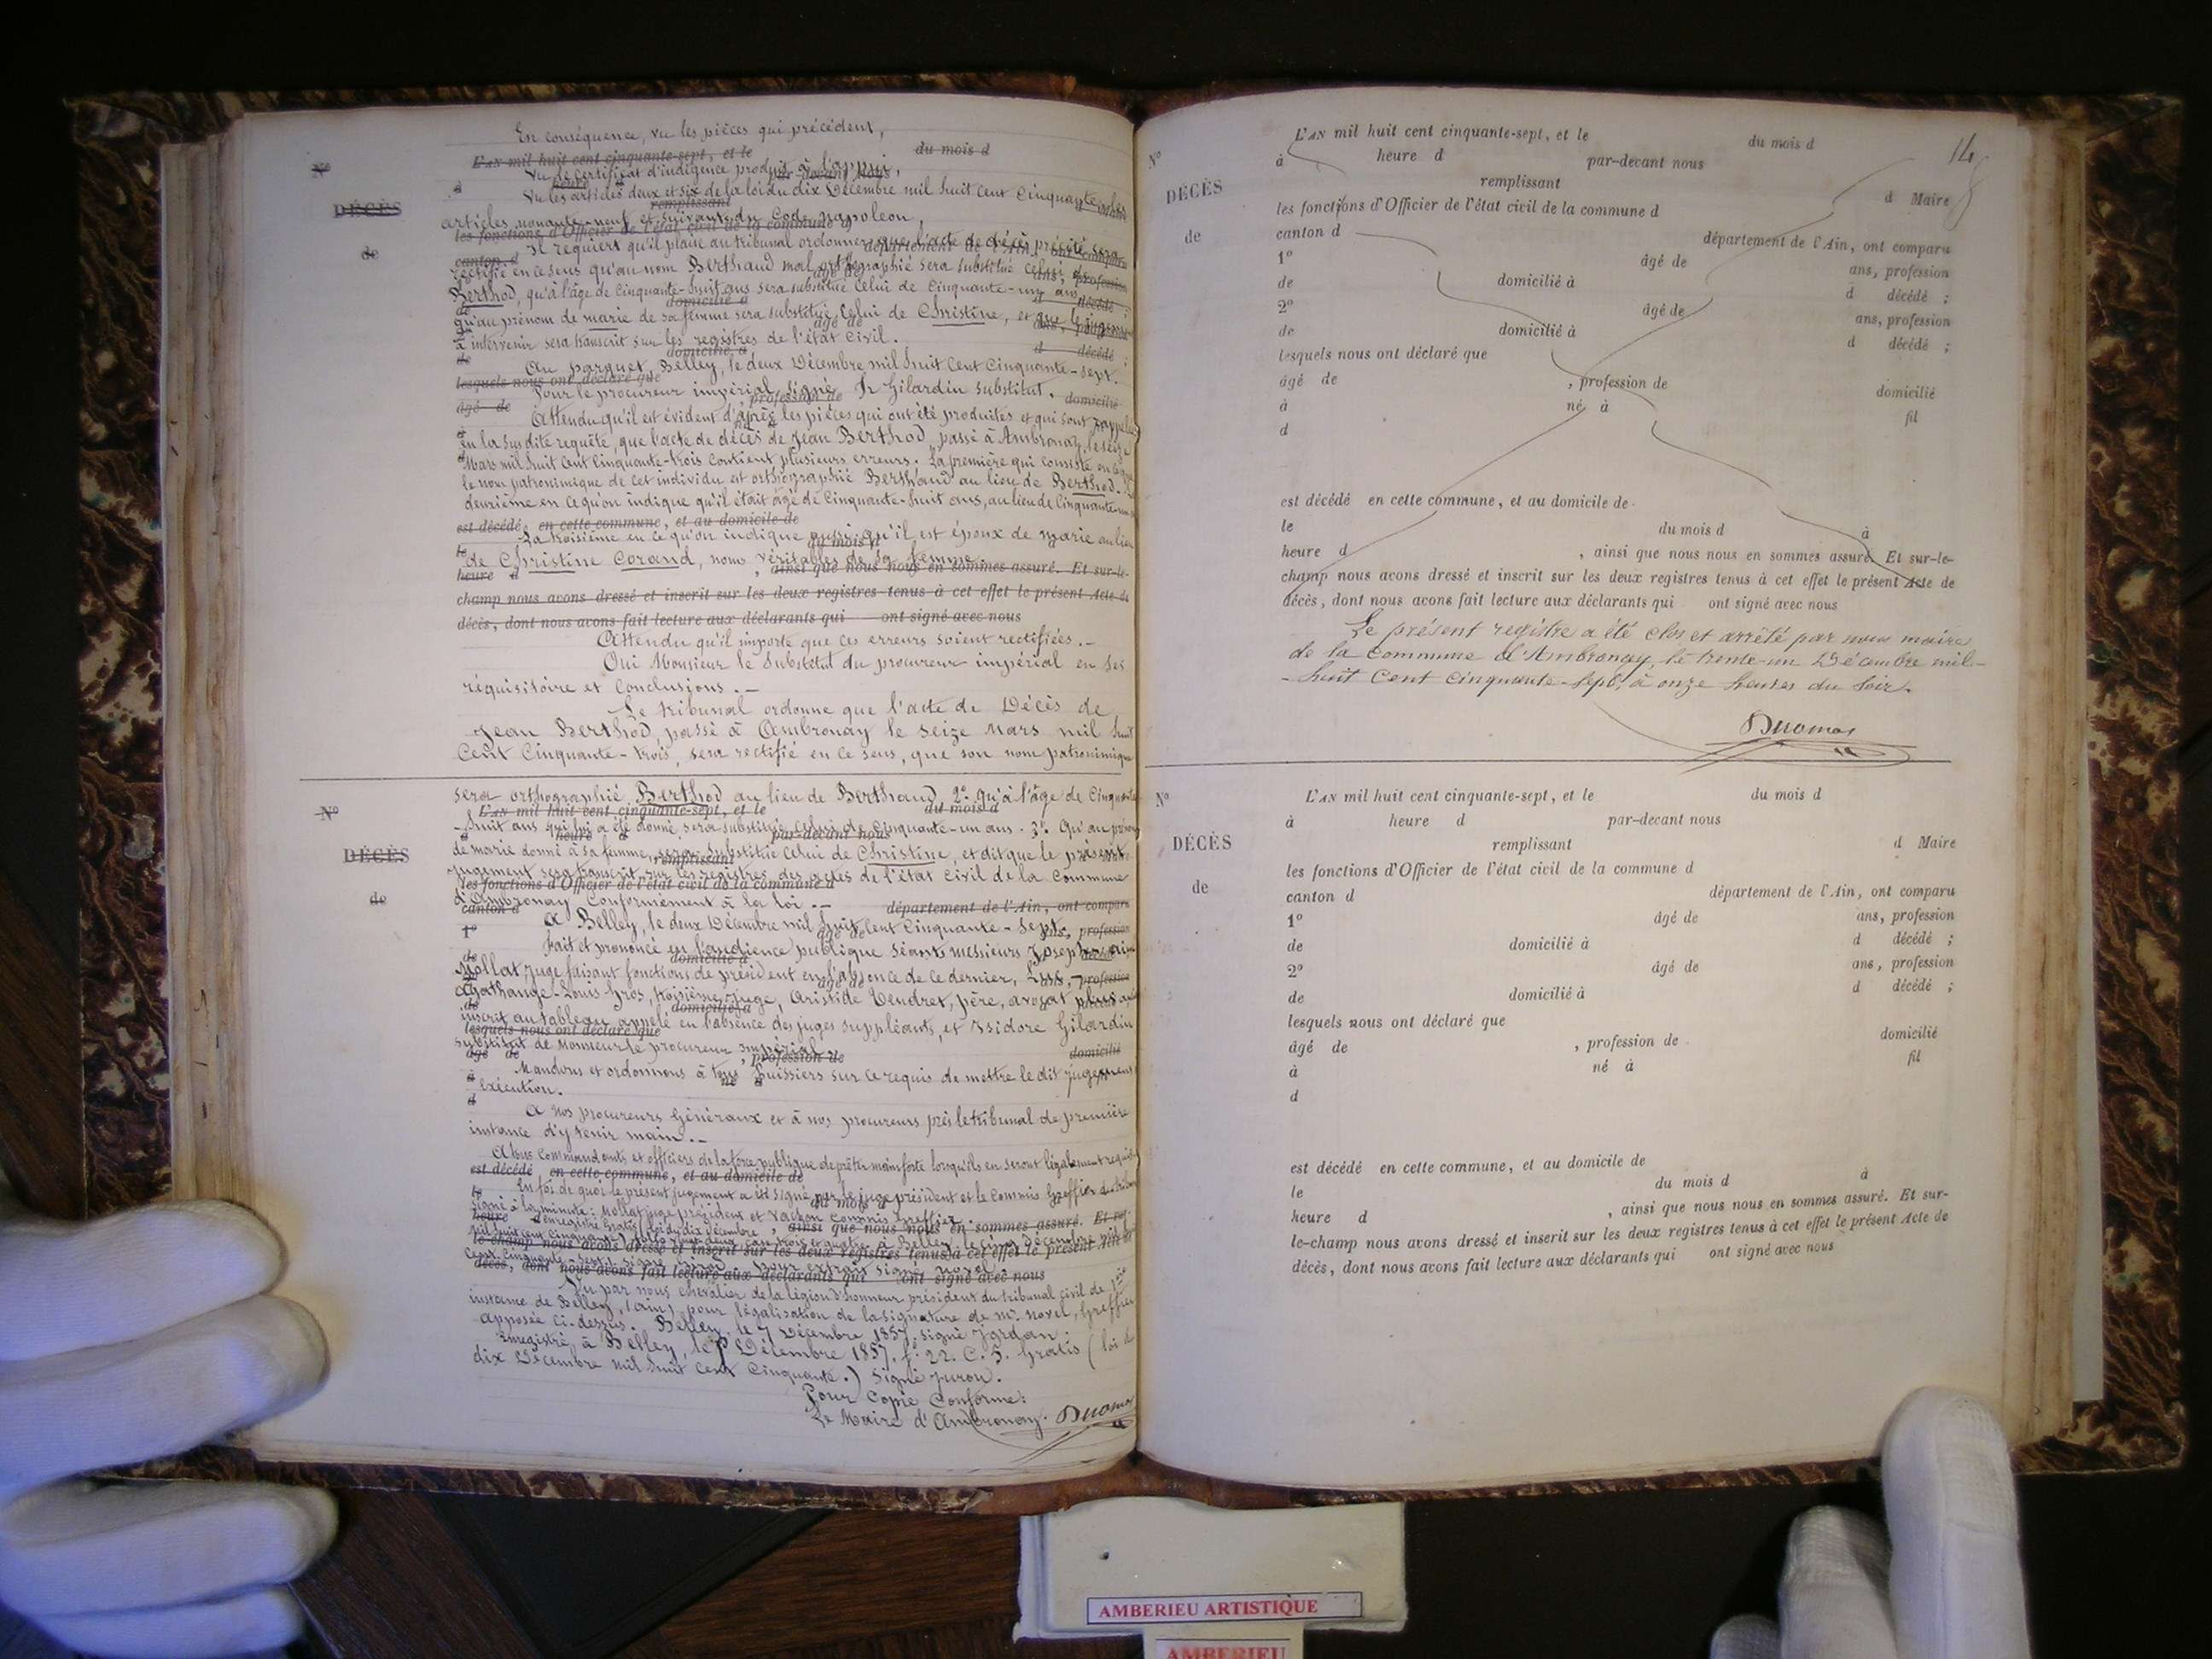 En conséquence, vu les pièces qui précédent,
N° L'AN mil huit cent cinquante-sept, et le du mois d
Vu le certificat d'indigence produit à l'appui,
à heure d par-devant nous
Vu les articles deux et six de la loi du dix Décembre mil huit cent Cinquante
DÉCÈS remplissant
articles nonante-neuf et suivants du Code napoleon,
les fonctions d'Officier de l'état civil de la commune d
Il requiert qu'il plaise au tribunal ordonner que l'acte de décès précité sera
de canton d département de l'Ain, ont comparu
rectifié en ce sens qu'au nom Berthaud mal orthographié sera substitué celui de
Berthod, qu'à l'âge de Cinquante-huit ans sera substitué Celui de Cinquante-un ans
de domicilié à d décédé
qu'au prénom de marie de sa femme sera substitué Celui de Christine, et que le jugement
à intervenir sera transcrit sur les registres de l'état Civil.
de domicilié à d décédé ;
Au parquet, Belley, le deux Décembre mil huit Cent Cinquante-sept.
lesquels nous ont déclaré que
Pour le procureur impérial, signé Ir Gilardin substitut.
âgé de , profession de domicilié
Attendu qu'il est évident d'après les pièces qui ont été produites et qui sont
à né à
en la susdite requête, que l'acte de décès de Jean Berthod, passé à Ambronay, le seize
d
Mars mil huit Cent Cinquante-trois Contient plusieurs erreurs. La première qui consiste en ce que
le nom patronimique de Cet individu est orthographié Berthaud au lieu de Berthod.
deuxième en ce qu'on indique qu'il était âgé de Cinquante-huit ans, au lieu de Cinquante-un
est décédé en cette commune, et au domicile de
La troisième en ce qu'on indique aussi qu'il est époux de marie au lieu
le du mois d
de Christine Corand, noms véritables de sa femme.
heure d , ainsi que nous nous en sommes assuré. Et sur-le-
champ nous avons dressé et inscrit sur les deux registres tenus à cet effet le présent Acte de
décès, dont nous avons fait lecture aux déclarants qui ont signé avec nous
Attendu qu'il importe que ces erreurs soient rectifiées.-
Oui Monsieur le Substitut du procureur impérial en ses
réquisitoire et Conclusions.-
Le tribunal ordonne que l'acte de Décès de
Jean Berthod, passé à Ambronay le seize Mars mil huit
Cent Cinquante-trois, sera rectifié en ce sens, que son nom patronimique
sera orthographié Berthod au lieu de Berthaud, 2° Qu'à l'âge de Cinquante
N° L'AN mil huit cent cinquante-sept, et le du mois d
-huit ans qui lui a été donné, sera substitué Celui de Cinquante-un ans. 3° Qu'au prénom
à heure d par-devant nous
de marie donné à sa femme, sera substitué Celui de Christine, et dit que le présent
DÉCÈS remplissant
jugement sera transcrit sur les registres des actes de l'état Civil de la Commune
les fonctions d'Officier de l'état civil de la commune d
d'Ambronay Conformément à la loi.-
de canton d département de l'Ain, ont comparu
A Belley, le deux Décembre mil huit Cent Cinquante-sept.
1° âgé de ans, profession
Fait et prononcé en l'audience publique séants messieurs Joseph
de domicilié à
Mollat, juge faisant fonctions de président en l'absence de ce dernier,
2° âgé de ans, profession
Agathange-Louis Gros, troisième juge, Aristide Tendret, père, avocat plus
de domicilié à
inscrit au tableau appelé en l'absence des juges suppléants, et Isidore Gilardin
lesquels nous ont déclaré que
substitut de Monsieur le procureur impérial.
âgé de , profession de domicilié
Mandons et ordonnons à tous huissiers sur ce requis de mettre le dit jugement
à né à
exécution.
d
A nos procureurs Généraux et à nos procureurs près le tribunal de première
instance d'y tenir main.-
A tous Commandants et officiers de la force publique de prêter mainforte lorsqu'ils en seront légalement requis
est décédé en cette commune, et au domicile de
En foi de quoi le présent jugement a été signé par le juge président et le Commis Greffier du tribunal
le du mois d
Signé à la minute: Mollat juge président et Vachon Commis greffier
heure d , ainsi que nous nous en sommes assuré. Et sur-
Enregistré Gratis (loi du dix décembre
mil huit cent cinquante)
le-champ nous avons dressé et inscrit sur les deux registres tenus à cet effet le présent Acte de
décès, dont nous avons fait lecture aux déclarants qui ont signé avec nous
Vu par nous chevalier de la légion d'honneur président du tribunal civil de
instance de Belley, (ain) pour légalisation de la signature de Mr. novel, Greffier
apposée ci-dessus. Belley, le 7 Décembre 1857. signé Jordan.
Enregistré à Belley, le Décembre 1857. f° 22. C. 5. Gratis (loi du
dix Décembre mil huit Cent Cinquante.) signé juron.
Pour Copie Conforme:
Le Maire d'Ambronay. Duomas
14
N° L'AN mil huit cent cinquante-sept, et le du mois d
à heure d par-devant nous
DÉCÈS remplissant d Maire
les fonctions d'Officier de l'état civil de la commune d
de canton d département de l'Ain, ont comparu
1° âgé de ans, profession
de domicilié à d décédé ;
2° âgé de ans, profession
de domicilié à d décédé ;
lesquels nous ont déclaré que
âgé de , profession de domicilié
à né à fil
d
est décédé en cette commune, et au domicile de
le du mois d à
heure d , ainsi que nous nous en sommes assuré. Et sur-le-
champ nous avons dressé et inscrit sur les deux registres tenus à cet effet le présent Acte de
décès, dont nous avons fait lecture aux déclarants qui ont signé avec nous
Le présent registre a été clos et arrêté par nous maire
de la Commune d'Ambronay, le trente-un Décembre mil-
-huit Cent Cinquante-Sept, à onze heures du Soir.
Duomas
N° L'AN mil huit cent cinquante-sept, et le du mois d
à heure d par-devant nous
DÉCÈS remplissant d Maire
les fonctions d'Officier de l'état civil de la commune d
de canton d département de l'Ain, ont comparu
1° âgé de ans, profession
de domicilié à d décédé ;
2° âgé de ans, profession
de domicilié à d décédé ;
lesquels nous ont déclaré que
âgé de , profession de domicilié
à né à fil
d
est décédé en cette commune, et au domicile de
le du mois d à
heure d , ainsi que nous nous en sommes assuré. Et sur-
le-champ nous avons dressé et inscrit sur les deux registres tenus à cet effet le présent Acte de
décès, dont nous avons fait lecture aux déclarants qui ont signé avec nous
AMBERIEU ARTISTIQUE
AMBERIEU